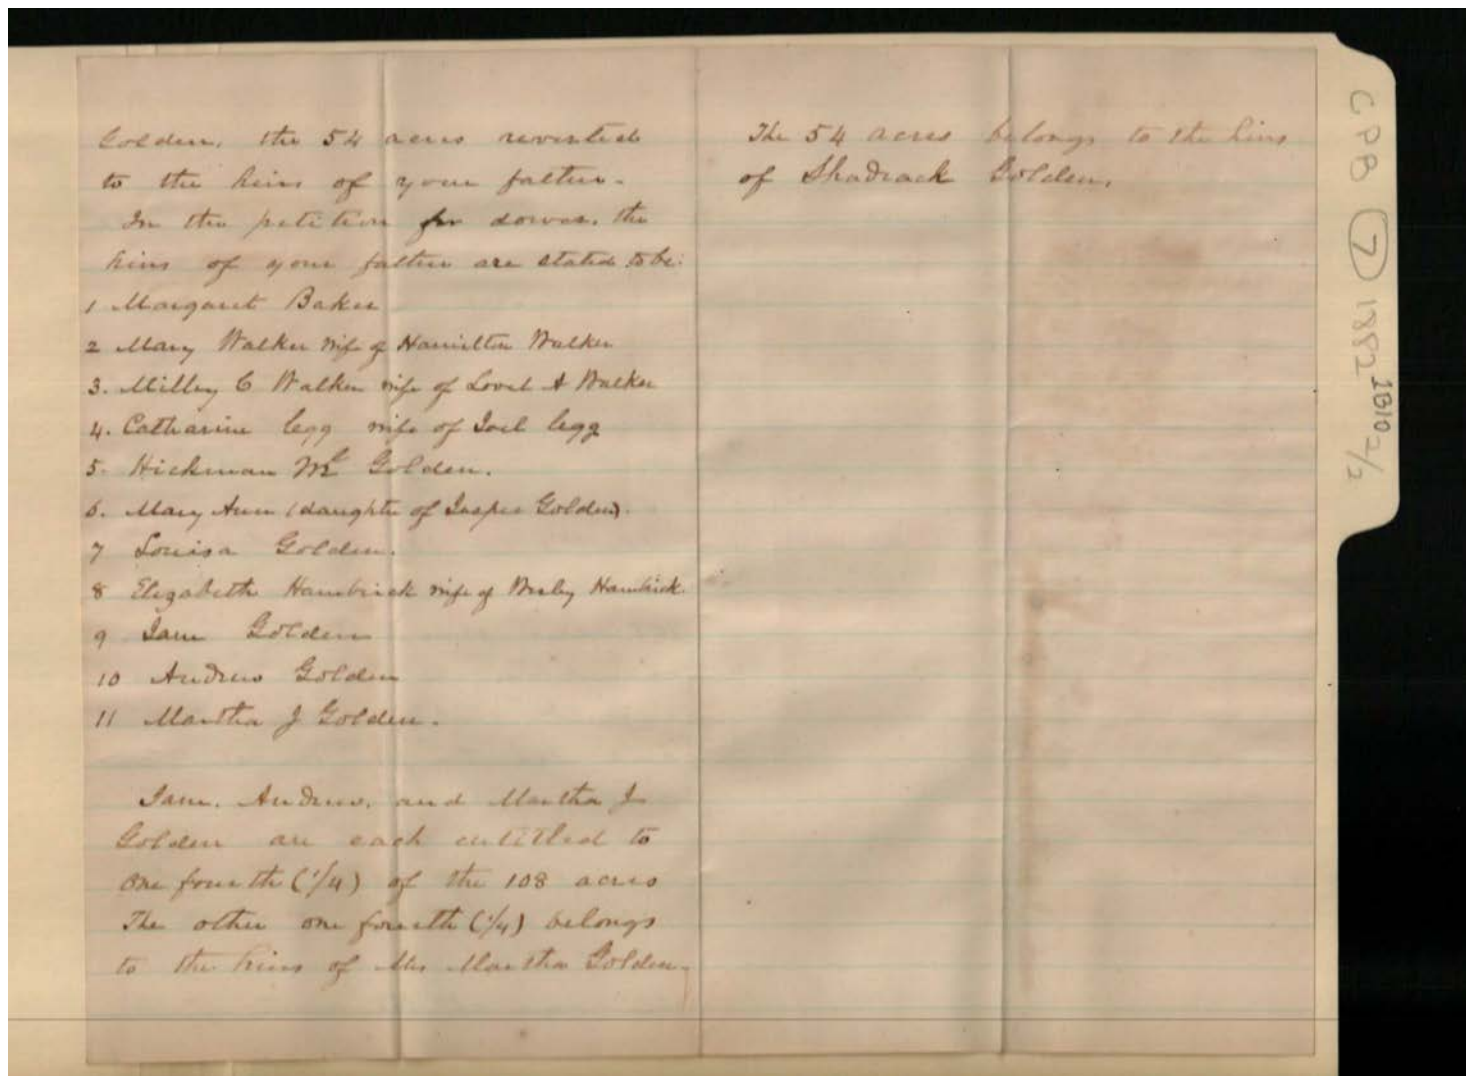 Golden, the 54 acres reverted
to the heirs of your father.
In the petition for dower, the
heirs of your father are stated to be:
1 Margaret Baker
2 Mary Walker wife of Hamilton Walker
3. Milley C Walker wife of Lovel A Walker
4. Catharine Legg wife of Joel Legg
5. Hickman Mc Golden.
6. Mary Ann (daughter of Jasper Golden).
7 Louisa Golden.
8 Elizabeth Hambrick wife of Wesley Hambrick.
9 Jane Golden
10 Andrew Golden
11 Martha J Golden.
Jane, Andrew, and Martha J
Golden are each entitled to
one fourth (1/4) of the 108 acres
The other one fourth (1/4) belongs
to the heirs of Mrs Martha Golden,
The 54 acres belongs to the heirs
of Shadrack Golden.
CPB 7 1882 1810 2/2